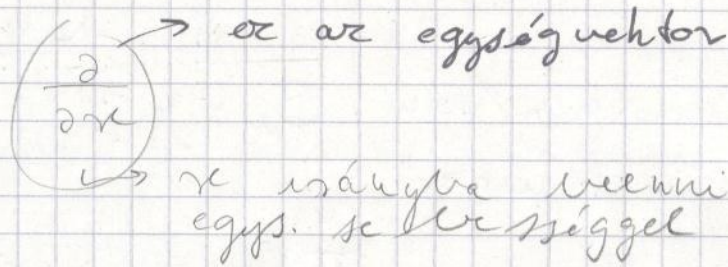 ez az egységvektor
∂
∂x
x irányba menni
egys. sebességgel